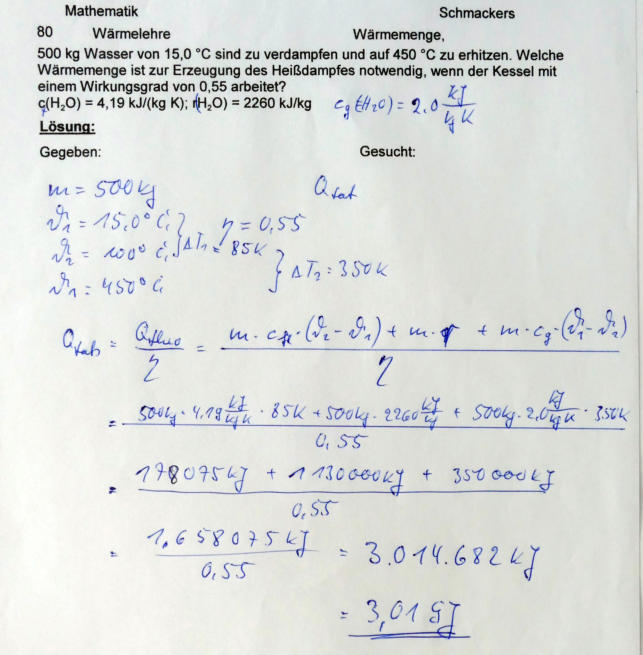 Mathematik Schmackers
80 Wärmelehre Wärmemenge,
500 kg Wasser von 15,0 °C sind zu verdampfen und auf 450 °C zu erhitzen. Welche
Wärmemenge ist zur Erzeugung des Heißdampfes notwendig, wenn der Kessel mit
einem Wirkungsgrad von 0,55 arbeitet?
c(H₂O) = 4,19 kJ/(kg K); r(H₂O) = 2260 kJ/kg cg(H₂O) = 2.0 kJ/kg K
Lösung:
Gegeben: Gesucht:
m = 500 kg Q
ϑ₁ = 15,0° C; } ΔT₁ = 85K η = 0,55
ϑ₂ = 100° C;
ϑ₁ = 450° C; } ΔT₂ = 350K
Q = Q/η = m · c · (ϑ₂ - ϑ₁) + m · r + m · cg · (ϑ₁ - ϑ₂) / η
= 500kg · 4,19 kJ/kg K · 85K + 500kg · 2260 kJ/kg + 500kg · 2,0 kJ/kg K · 350K / 0,55
= 178075 kJ + 1130000 kJ + 350000 kJ / 0,55
= 1,658075 kJ / 0,55 = 3.014.682 kJ
= 3,01 GJ